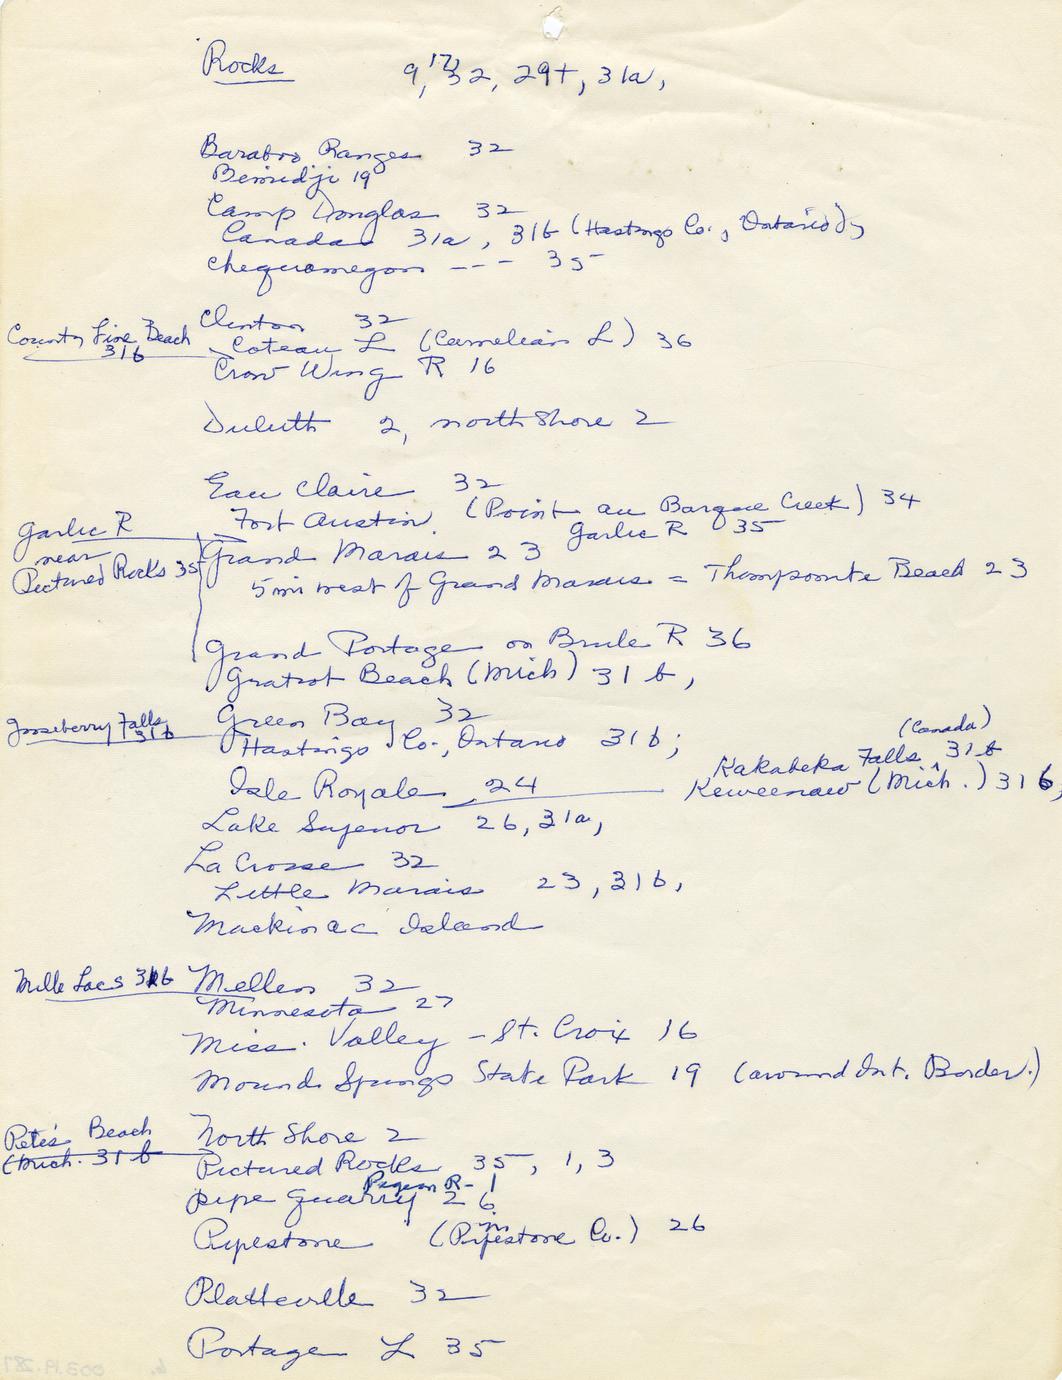 Rocks 9, 17, 32, 29+, 31a,
Baraboo Ranges 32
Bemidji 19
Camp Douglas 32
Canada 31a, 31b (Hastings Co., Ontario);
Chequamegon --- 35
Clinton 32
County Line Beach 31b
Coteau L (Carnelian L) 36
Crow Wing R 16
Duluth 2, north Shore 2
Eau Claire 32
Fort Austin (Point au Barque Creek) 34
Garlic R 35
Garlic R near Pictured Rocks 35
Grand Marais 23
5 mi west of Grand Marais = Thompsonite Beach 23
Grand Portage on Brule R 36
Gratiot Beach (Mich) 31b,
Green Bay 32
Gooseberry Falls 31b
Hastings Co., Ontario 31b;
(Canada)
Kakabeka Falls 31b
Isle Royale 24
Keweenaw (Mich.) 31b,
Lake Superior 26, 31a,
La Crosse 32
Little Marais 23, 31b,
Mackinac Island
Mille Lacs 31b
Mellen 32
Minnesota 27
Miss. Valley - St. Croix 16
Mound Springs State Park 19 (around Int. Border.)
North Shore 2
Pete's Beach (Mich. 31b
Pictured Rocks 35, 1, 3
Pigeon R- 1
pipe Quarry 26
Pipestone (Pipestone Co.) 26
Platteville 32
Portage L 35